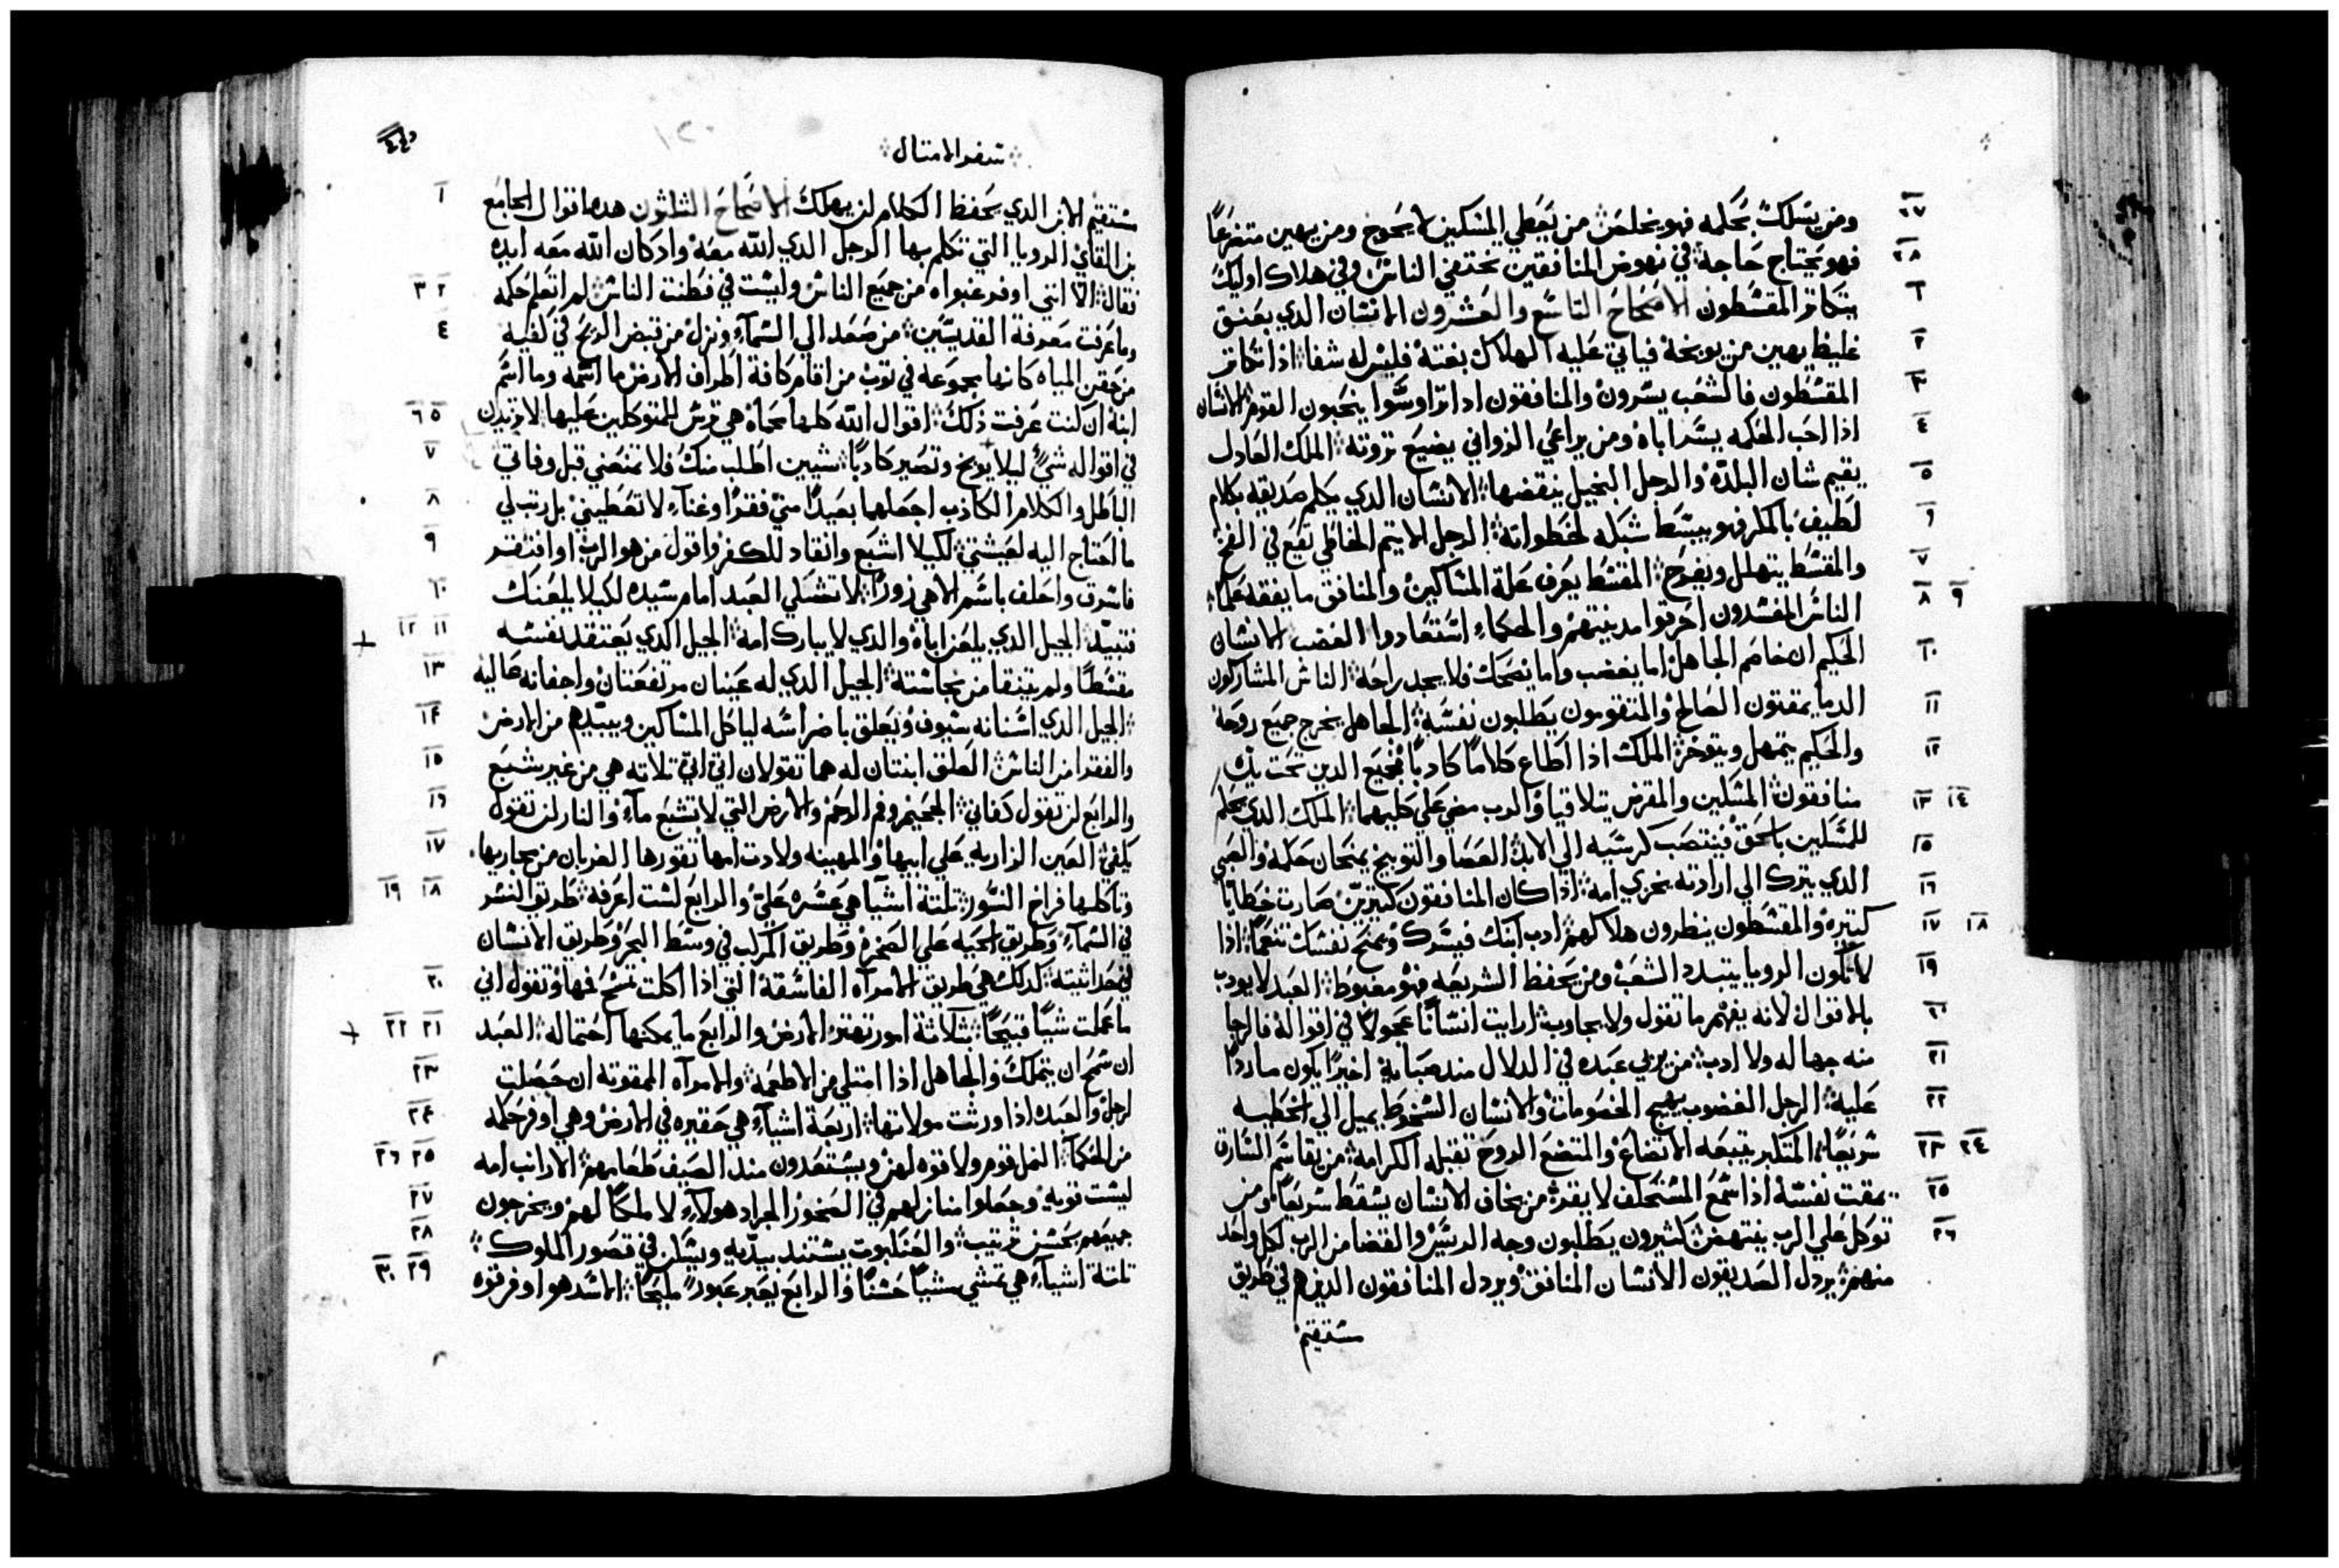 ومن يسلك بحكمه فهو يخلص من يعطي المسكين لا يحوج ومن يهين متضرعاً
فهو يحتاج حاجة في نهوض المنافقين تختفي الناس وفي هلاك اوليك
يتكاثر المقسطون الاصحاح التاسع والعشرون الانسان الذي بعنق
غليظ يهين من يوبخه فياتي عليه الهلاك بغتة فليس له شفا اذا تكاثر
المقسطون فالشعب يسرون والمنافقون اذا تراوسوا ينحبون القوم الانسان
اذا احب الحكمه يسر اباه ومن يراعي الزواني يضيع ثروته الملك العادل
يقيم شان البلده والرجل البخيل ينقضها الانسان الذي يكلم صديقه بكلام
لطيف بالمكر فهو يبسط شبكه لخطواته الرجل الايتم الخاطي تقع في الفخ
والمقسط يتهلل ويفرح المقسط يعرف علة المساكين والمنافق ما يفقه علماً
الناس المفسدون احرقوا مدينتهم والحكماء استعادوا الغضب الانسان
الحكيم ان خاصم الجاهل اما يغضب واما يضحك فلا يجد راحة الناس المشاركون
الدما يمقتون الصالح والمتقومون يطلبون نفسه الجاهل يخرج جميع روحه
والحكيم يتمهل ويتوخر الملك اذا اطاع كلاماً كاذباً فجميع الدين تحت يده
منافقون المسكين والمقرض تلاقيا والرب مضي علي كليهما الملك الذي يحكم
للمسكين بالحق فينتصب كرسيه الي الابد العصا والتوبيخ يمنحان حكمة والصبي
الذي يترك الي ارادته يخزي امه اذا كان المنافقون كتيرين صارت خطايا
كتيره والمقسطون ينظرون هلاكهم ادب ابنك فيسرك ويمنح نفسك تنعماً اذا
لا تكون الرويا يتبدد الشعب ومن يحفظ الشريعه فهو مغبوط العبد لا يودب
بالاقوال لانه يفهم ما تقول ولا يجاوب ارايت انساناً عجولاً في اقواله فالرجا
منه جهاله ولا ادب من يربي عبده في الدلال منذ صبايه اخيراً يكون ماردا
عليه الرجل الغضوب يهيج الخصومات والانسان السخوط يميل الي الخطيه
سريعاً المتكبر يتبعه الاتضاع والمتضع الروح تقبله الكرامة من يقاسم السارق
يمقت نفسه اذا سمع المستحلف لا يقر من يخاف الانسان يسقط سريعاً ومن
توكل علي الرب ينتهض كثيرون يطلبون وجه الريس والقضا من الرب لكل واحد
منهم يردل الصديقون الانسان المنافق ويردل المنافقون الدين هم في طريق
مستقيم
سفر الامتال
مستقيم الابن الذي يحفظ الكلام لن يهلك الاصحاح الثلثون هده اقوال الجامع
بن القاي الرويا التي تكلم بها الرجل الذي الله معه واد كان الله معه ايده
فقال الا انني اوفر غباواه من جميع الناس وليست في فطنت الناس لم اتعلم حكمه
وما عرفت معرفة القديسين من صعد الي السماء ونزل من قبض الريح في كفيه
من حقن المياه كانها مجموعة في توب من اقام كافة اطراف الارض ما اسمه وما اسم
ابنه ان كنت عرفت ذلك اقوال الله كلها محماه هي ترس للمتوكلين عليها لا تزيدن
في اقواله شي ليلا يوبخ وتصير كادباً شيين اطلب منك فلا تمنعني قبل وفاتي
الباطل والكلام الكاذب اجعلهما بعيداً مني فقراً وغناء لا تعطيني بل رتب لي
ما احتاج اليه لعيشتي لكيلا اشبع وانقاد للكفر واقول من هو الرب او افتقر
فاسرق واحلف باسم الاهي زوراً لا تشكي العبد امام سيده لكيلا يلعنك
فتبيد الجيل الذي يلعن اباه والذي لا يبارك امه الجيل الذي يعتقد نفسه
مقسطاً ولم يتنقا من نجاسته الجيل الذي له عينان مرتفعتان واجفانه عاليه
الجيل الذي اسنانه سيوف ويعلق باضراسه لياكل المساكين ويبيدهم من الارض
والفقرا من الناس العلق ابنتان له هما تقولان اتي اتي تلاته هي من غير شبع
والرابع لن تقول كفاني الجحيم وفم الرحم والارض التي لا تشبع ماء والنار لن تقول
يكفي العين الزاريه علي ابيها والمهينه ولادت امها تقورها الغربان من مجاريها
وتاكلها فراخ النسور تلتة اشيا هي عسره علي والرابع لست اعرفه طريق النسر
في السماء وطريق الحيه علي الصخرة وطريق المركب في وسط البحر وطريق الانسان
في حداثيته كدلك هي طريق الامراه الفاسقة التي اذا اكلت تمسح فمها وتقول اني
ما عملت شياً قبيحاً بثلاثة امور تهتز الارض والرابع ما يمكنها احتماله العبد
ان سمح ان يتملك والجاهل اذا امتلي من الاطعمه والامراه الممقوته ان حصلت
لرجل والعبده اذا ورثت مولاتها اربعة اشياء هي حقيره في الارض وهي اوفر حكمه
من الحكما النمل قوم ولا قوه لهن ويستعدون مند الصيف طعامهم الارانب امه
ليست قويه وجعلوا منازلهم في الصخور الجراد هولاء لا ملكاً لهم ويخرجون
جميعهم بحسن ترتيب والعنكبوت يستند بيديه ويسكن في قصور الملوك
تلتة اشياء هي تمشي مشياً حسناً والرابع يعبر عبوراً مليحاً الاسد هو اوفر قوه